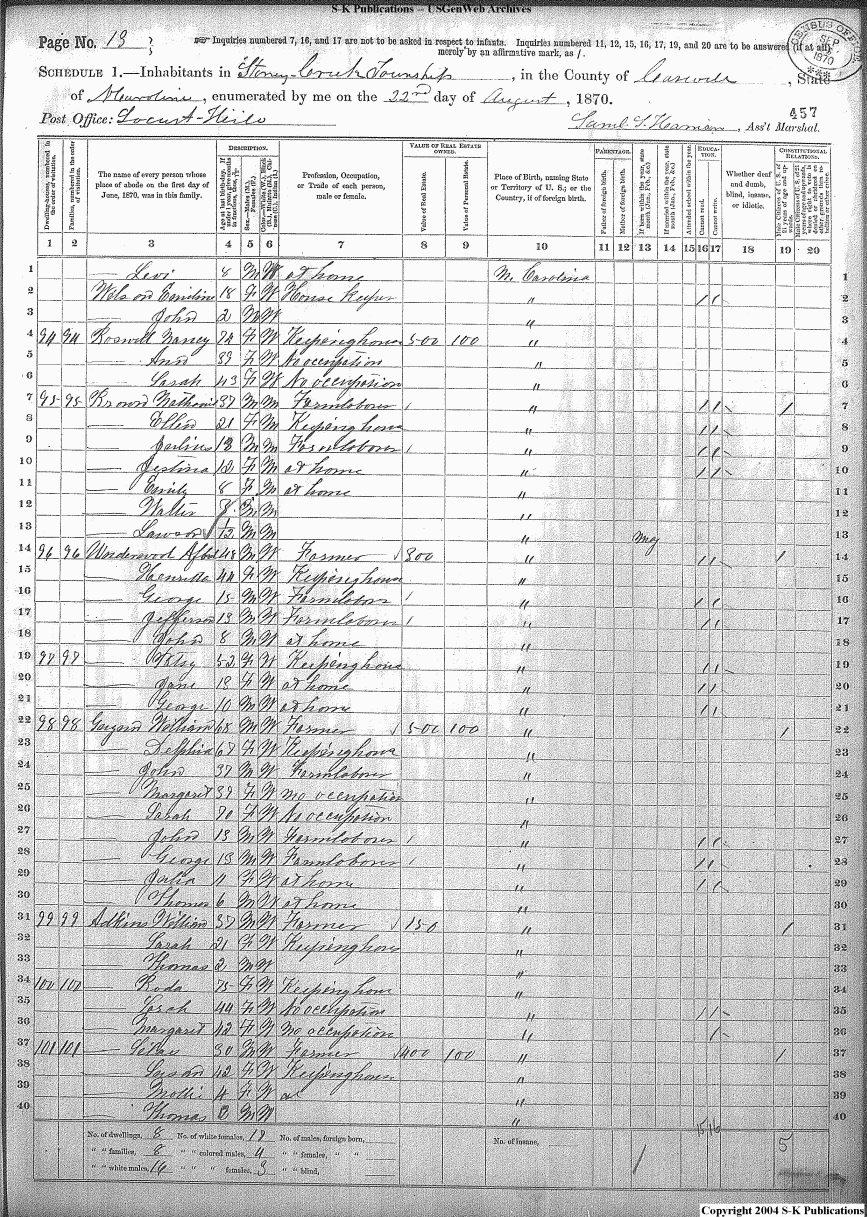 S-K Publications -- USGenWeb Archives
Page No. 13
Inquiries numbered 7, 16, and 17 are not to be asked in respect to infants. Inquiries numbered 11, 12, 15, 16, 17, 19, and 20 are to be answered (if at all) merely by an affirmative mark, as /.
CENSUS OFFICE SEP 1870
SCHEDULE 1.—Inhabitants in Stoney Creek Township, in the County of Caswell, State
of N Caroline, enumerated by me on the 22nd day of August, 1870.
457
Post Office: Locust Hill
Saml. , Ass't Marshal.
DESCRIPTION. VALUE OF REAL ESTATE OWNED. PARENTAGE. EDUCATION. CONSTITUTIONAL RELATIONS.
Dwelling-houses, numbered in the order of visitation.
Families, numbered in the order of visitation.
The name of every person whose place of abode on the first day of June, 1870, was in this family.
Age at last birth-day.
Profession, Occupation, or Trade of each person, male or female.
Value of Real Estate.
Value of Personal Estate.
Place of Birth, naming State or Territory of U. S.; or the Country, if of foreign birth.
Father of foreign birth.
Mother of foreign birth.
Attended school within the year.
Cannot read.
Cannot write.
Whether deaf and dumb, blind, insane, or idiotic.
1 2 3 4 5 6 7 8 9 10 11 12 13 14 15 16 17 18 19 20
1 — Levi 8 M W at home N. Carolina 1
2 Wilson Emiline 18 F W House Keeper " / / 2
3 — John 2 M W " 3
4 94 94 Boswell Nancy 74 F W Keepinghouse 500 100 " 4
5 — Ann 39 F W No occupation " 5
6 — Sarah 43 F W No occupation " 6
7 95 95 Brown Nathaniel 37 M M Farmlaborer / " / / / 7
8 — Ellen 21 F M Keepinghouse " / / 8
9 — 13 M M Farmlaborer / " / / 9
10 — Justina 12 F M at home " / / 10
11 — Emily 8 F M at home " 11
12 — Walter M M " 12
13 — Lawson 1/12 M M " May 13
14 96 96 Underwood 48 M W Farmer 300 " / / / 14
15 — Henrietta 44 F W Keepinghouse " 15
16 — George 15 M W Farmlaborer / " / / 16
17 — Jefferson 13 M W Farmlaborer / " / / 17
18 — John 8 M W at home " 18
19 97 97 — Patsy 52 F W Keepinghouse " / / 19
20 — Jane 18 F W at home " / / 20
21 — George 10 M W at home " / / 21
22 98 98 William 68 M W Farmer 500 100 " / 22
23 — Delphia 67 F W Keepinghouse " 23
24 — John 37 M W Farmlaborer " 24
25 — Margaret 39 F W No occupation " 25
26 — Sarah 70 F W No occupation " 26
27 — John 13 M W Farmlaborer / " / / 27
28 — George 13 M W Farmlaborer / " / / 28
29 — Julia 11 F W at home " / / 29
30 — Thomas 6 M W at home " 30
31 99 99 Adkins William 37 M W Farmer 150 " / 31
32 — Sarah 21 F W Keepinghouse " 32
33 — Thomas 2 M W " 33
34 100 100 — Roda 75 F W Keepinghouse " 34
35 — Sarah 44 F W No occupation " / / 35
36 — Margaret 42 F W No occupation " / 36
37 101 101 — Silas 30 M W Farmer 400 100 " / 37
38 — Susan 42 F W Keepinghouse " 38
39 — Mollie 4 F W at " 39
40 — Thomas M W " 40
No. of dwellings, 8 No. of white females, 18 No. of males, foreign born, No. of insane, 15 16 5
" " families, 8 " " colored males, 4 " " females, " "
" " white males, 16 " " " females, 3 " " blind,
Copyright 2004 S-K Publications